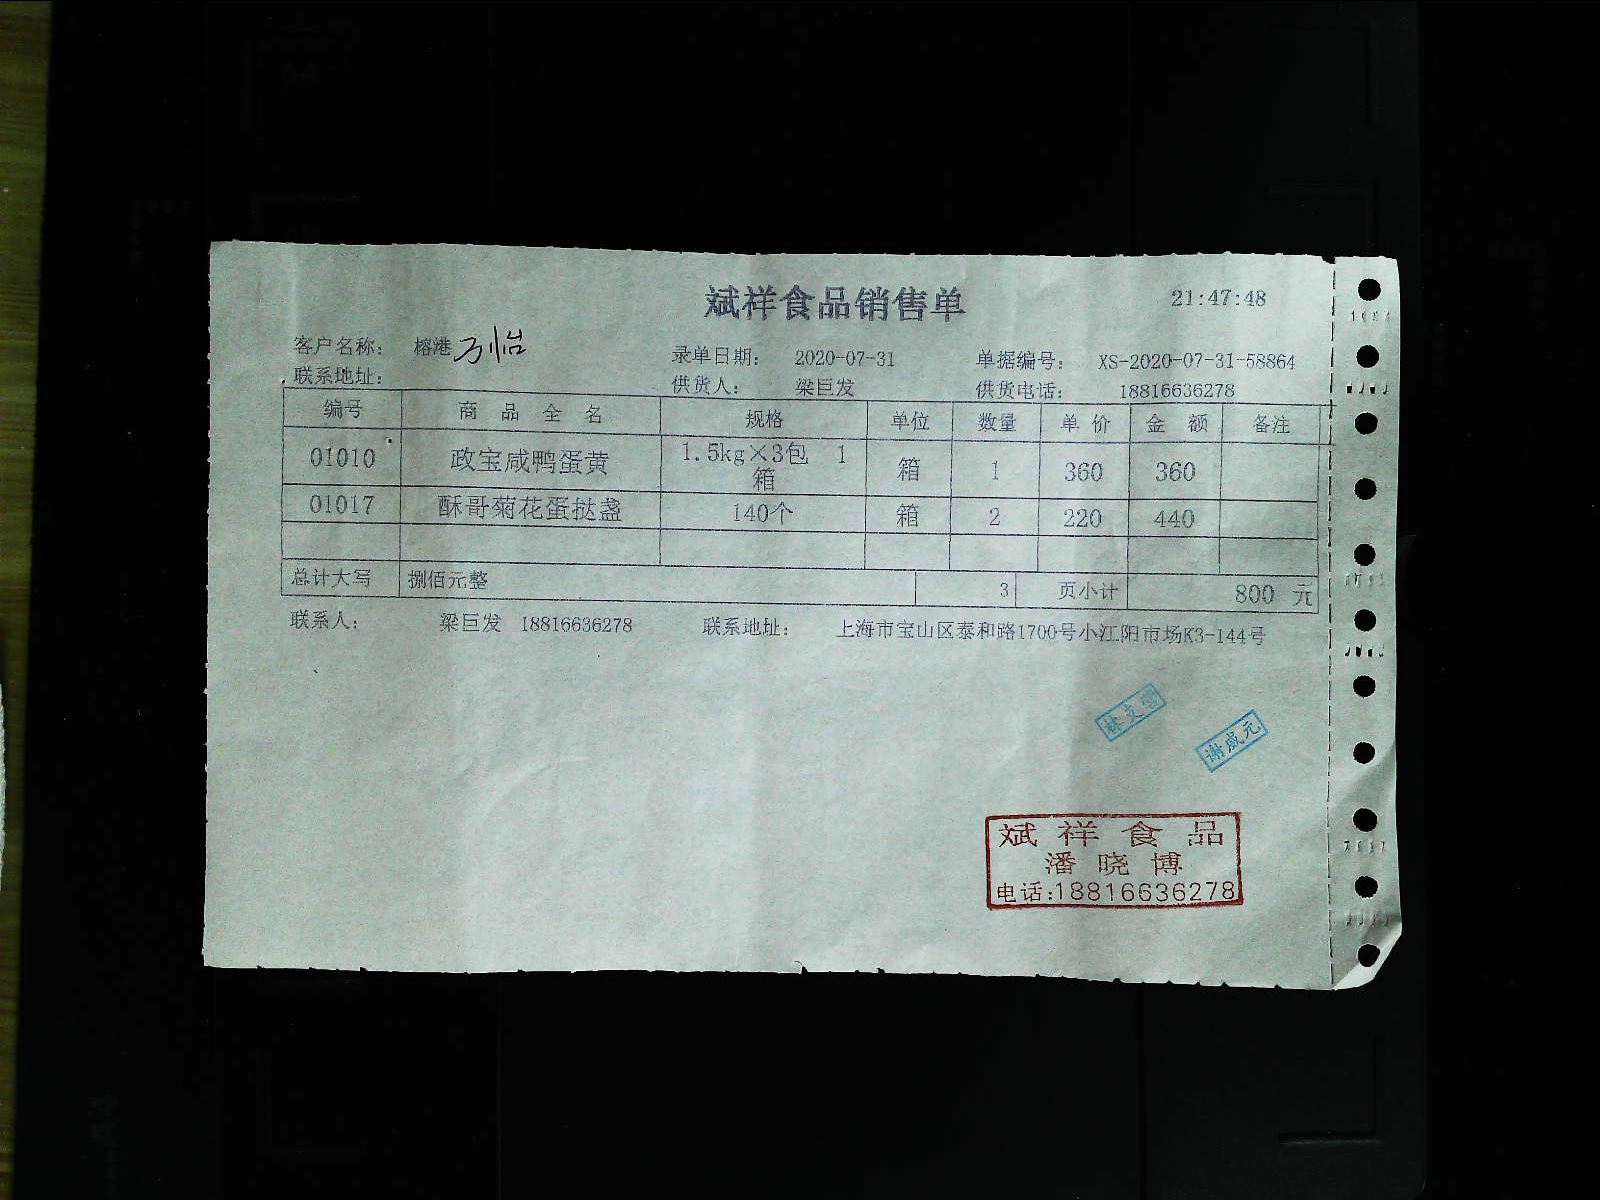 斌祥食品销售单
21:47:48
客户名称： 榕港
录单日期： 2020-07-31 单据编号： XS-2020-07-31-58864
联系地址：
供货人： 梁巨发 供货电话： 18816636278
编号 商 品 全 名 规格 单位 数量 单 价 金 额 备注
01010 政宝咸鸭蛋黄 1.5kg×3包 1箱 箱 1 360 360
01017 酥哥菊花蛋挞盏 140个 箱 2 220 440
总计大写 捌佰元整 3 页小计 800 元
联系人： 梁巨发 18816636278 联系地址： 上海市宝山区泰和路1700号小江阳市场K3-144号
谢威元
斌祥食品
潘晓博
电话:18816636278